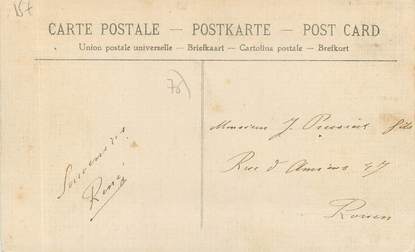 157
CARTE POSTALE — POSTKARTE — POST CARD
Union postale universelle — Briefkaart — Cartolina postale — Brefkort
78)
Souvenirs
René
Monsieur J. fils
Rue d'Amiens 47
Rouen